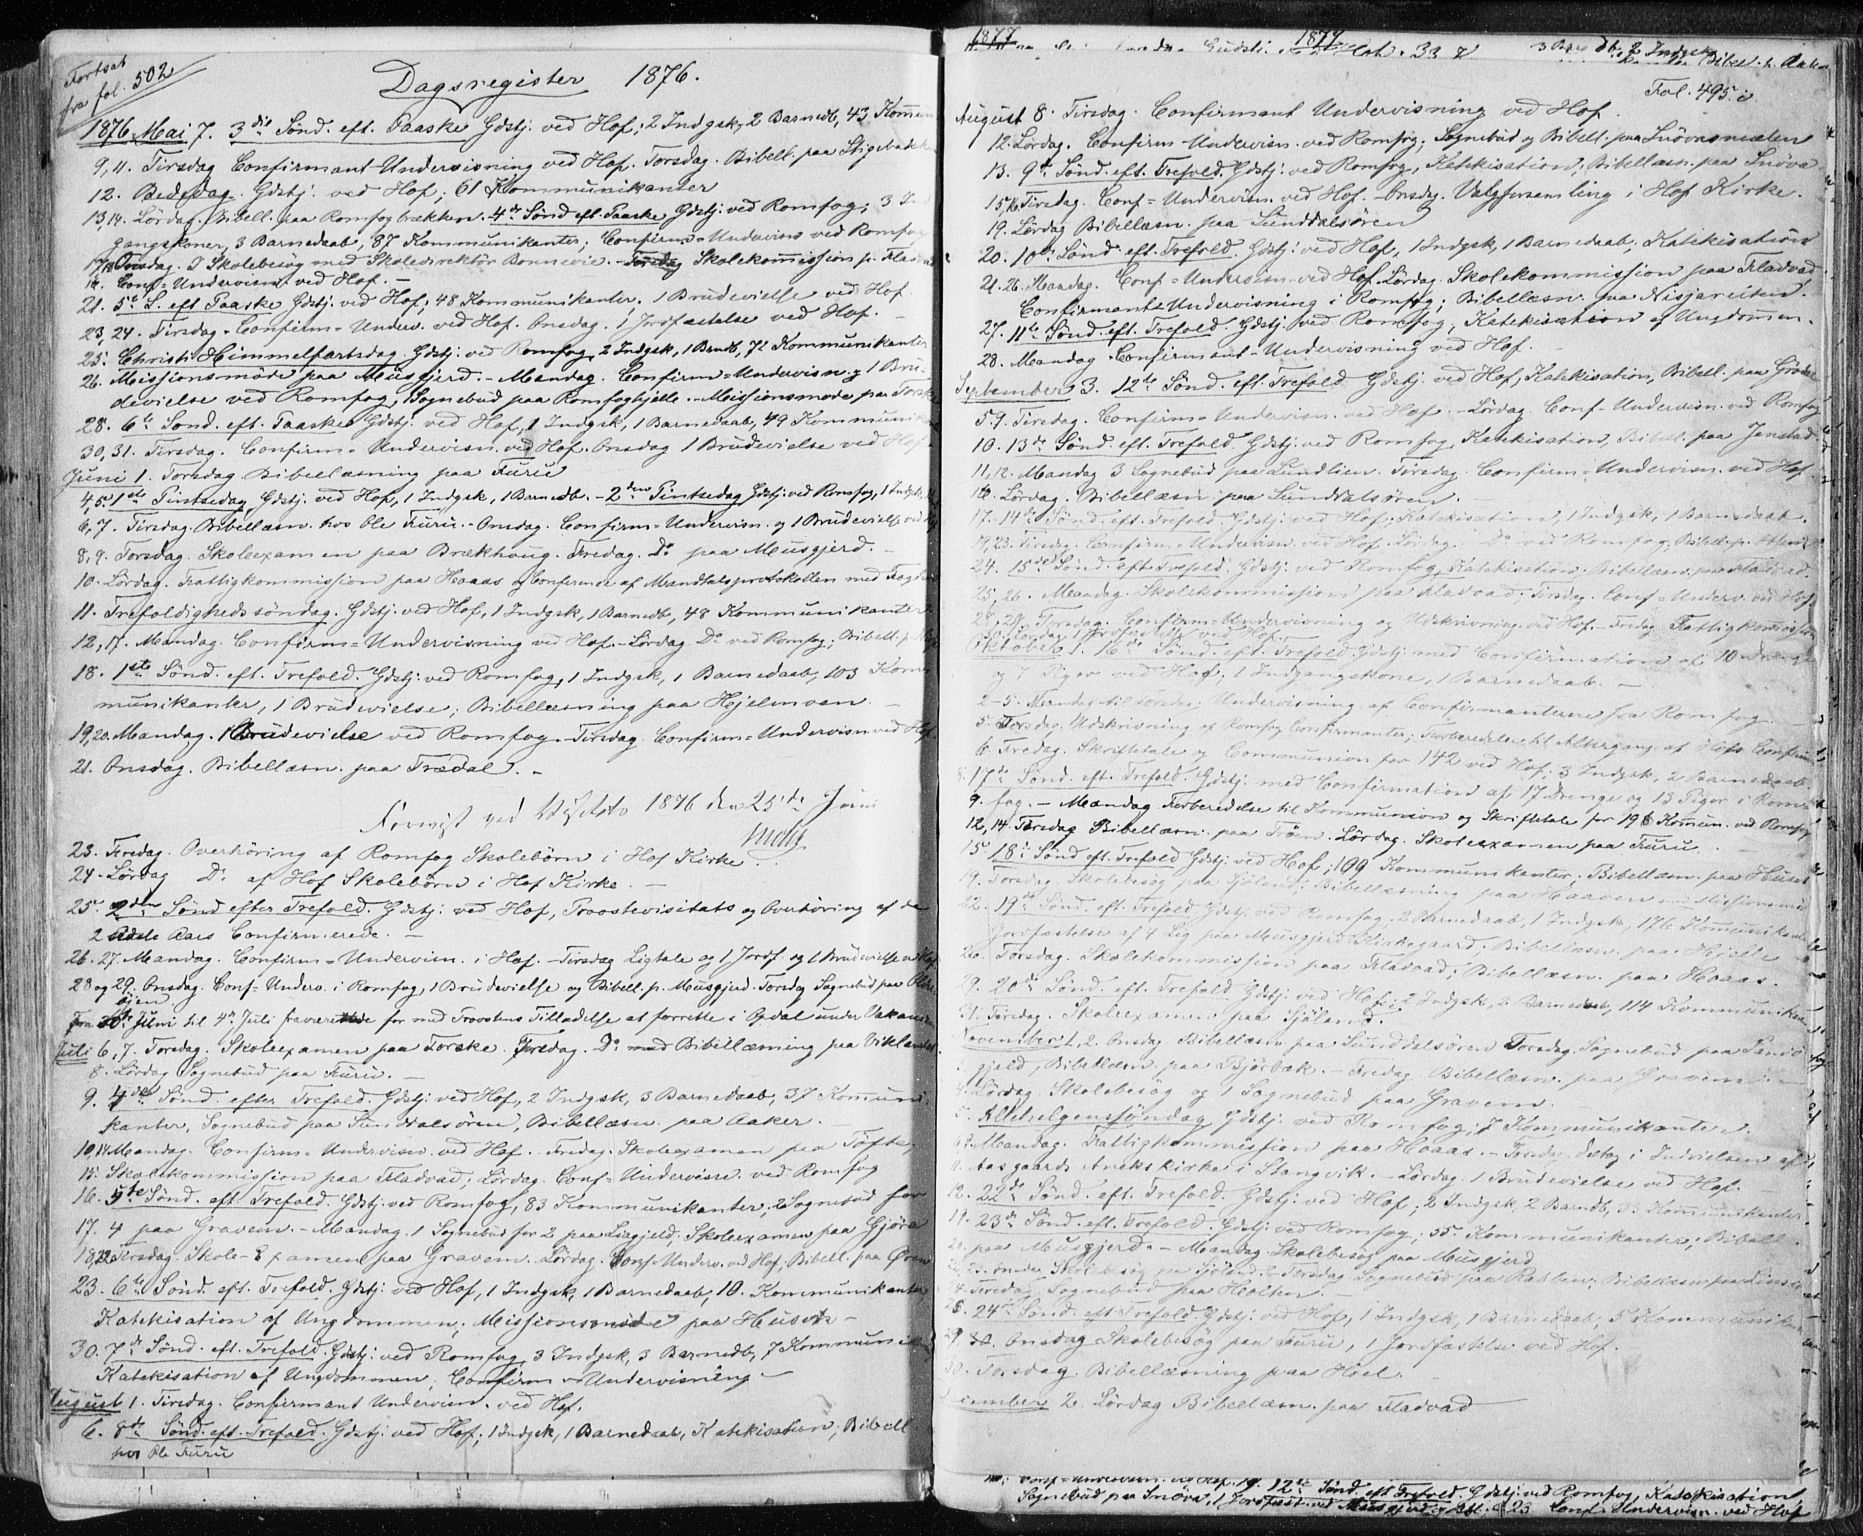 Fortsat
fra fol. 502
Dagsregister 1876.
1876 Mai 7. 3die Sønd. eft. Paaske Gdstj. ved Hof; 2 Indgsk, 2 Barnedb, 43 Komun
9, 11. Tirsdag Confirmant Undervisning ved Hof. Torsdag. Bibell. paa
12. Bededag. Gdstj. ved Hof; 61 Kommunikanter
13, 14. Lørdag. Bibell. paa Romfogbækken. 4de Sønd eft. Paaske Gdstj. ved Romfog; 3 Ind
gangskoner, 3 Barnedaab, 87 Kommunikanter; Confirm-Undervisn ved Romfog
Onsdag. Skolebesøg med Skoledirektør Bonnevie. Skolekomission p. Fladvad
Conf-Undervisn. ved Hof.
21. 5te S. eft Paaske Gdstj. ved Hof; 48 Kommunikanter. 1 Brudevielse ved Hof
23, 24. Tirsdag. Confirm-Underv. ved Hof. Onsdag. 1 Jordfæstelse ved Hof.
25. Christi Himmelfartsdag. Gdstj. ved Romfog, 2 Indgsk, 1 Brndb, 71 Kommunikanter
26. Missionsmøde paa Musgjerd. - Mandag. Confirm-Undervisn. og 1 Bru-
devielse ved Romfog, Sognebud paa Romfoghjelle. - Missionsmøde paa Torske
28. 6te Sønd. eft. Paaske Gdstj. ved Hof, 1 Indgsk, 1 Barnedaab, 49 Kommunikan
30, 31. Tirsdag. Confirm-Undervisn. ved Hof. Onsdag 1 Brudevielse ved Hof
Juni 1. Torsdag Bibellæsning paa Furu
4, 5. 1ste Pintsedag Gdstj. ved Hof, 1 Indgsk, 1 Barnedb. - 2den Pintsedag Gdstj. ved Romfog, 1 Indgsk,
6, 7. Tirsdag. Bibellæsn. hos Ole Furu. - Onsdag. Confirm-Undervisn. og 1 Brudevielse ved
8, 9. Torsdag. Skoleexamen paa Brækhaug. Fredag. Do paa Musgjerd.
10. Lørdag. Fattigkommission paa Hoaas og Conference af Mandtalsprotokollen med Fogden
11. Trefoldighedssøndag. Gdstj. ved Hof, 1 Indgsk, 1 Barnedb, 48 Kommunikanter
12, 17. Mandag. Confirm-Undervisning ved Hof. - Lørdag. Do ved Romfog; Bibell. p.
18. 1ste Sønd. eft. Trefold. Gdstj. ved Romfog, 1 Indgsk, 1 Barnedaab, 103 Kom
munikanter, 1 Brudevielse; Bibellæsning paa Hjelmvan
19, 20. Mandag. 1 Brudevielse ved Romfog. Tirsdag. Confirm-Undervisn ved Hof
21. Onsdag. Bibellæsn. paa Trædal. -
ved 1876 den 25de Juni
23. Fredag. Overhøring af Romfog Skolebørn i Hof Kirke
24. Lørdag Do af Hof Skolebørn i Hof Kirke. -
25. 2den Sønd efter Trefold. Gdstj. ved Hof, Proostevisitats og Overhøring af de
2 sidste Aars Confirmerede. -
26. 27. Mandag. Confirm-Undervisn. i Hof. - Tirsdag Ligtale og 1 Jordf. og 1 Brudevielse ved Hof
28 og 29. Onsdag. Conf-Underv. i Romfog, 1 Brudevielse og Bibell. p. Musgjerd. Torsdag Sognebud paa
øien
Fra Juni til 4de Juli fraværende for med Proostens Tilladelse at forrette i Opdal under Vakancen
Juli 6, 7. Torsdag. Skoleexamen paa Torske. Fredag. Do med Bibellæsning paa Viklandet
8. Lørdag Sognebud paa Furu. -
9. 4de Sønd. efter Trefold. Gdstj. ved Hof, 2 Indgsk, 3 Barnedaab, 37 Komuni-
kanter, Sognebud paa Sunddalsøren, Bibellæsn. paa Aaker.
10, 14. Mandag. Confirm-Undervisn ved Hof. - Fredag. Skoleexamen paa Tofte,
15. Skolekommission paa Fladvad; Lørdag. Conf-Undervisn. ved Romfog
16. 5te Sønd. eft. Trefold. Gdstj. ved Romfog, 83 Kommunikanter, 2 Sognebud for
17. 4 paa Gravem. - Mandag. 1 Sognebud for 2 paa Liagjeld. Skoleexamen paa Gjøra
18, 22. Tirsdag. Skole-Examen paa Gravem. Lørdag. Conf-Underv. ved Hof, Bibell. paa Øren
23. 6te Sønd. eft. Trefold. Gdstj. ved Hof, 1 Indgsk, 1 Barnedaab, 10. Kommunikanter
Katekisation af Ungdommen, Missionsmøde paa Husen -
30. 7de Sønd. eft. Trefold. Gdstj. ved Romfog, 3 Indgsk, 3 Barnedb, 7 Kommunik
Katekisation af Ungdommen, Confirm-Undervisning -
August 1. Tirsdag. Confirmant Undervisn. ved Hof.
6. 8de Sønd. eft. Trefold. Gdstj. ved Hof; 1 Indgsk, 1 Barnedaab, Katekisation, Bibell
hos Ole Furu
1877 1877
Fol. 495
August 8. Tirsdag. Confirmant Undervisning ved Hof
12. Lørdag. Confirm-Undervisn. ved Romfog; Sognebud og Bibell. paa Snøvasmælen
13. 9de Sønd. eft. Trefold. Gdstj. ved Romfog, Katekisation; Bibellæsn. paa Snøva
15, 16. Tirsdag. Conf-Undervisn. ved Hof. Onsdg. Valgforsamling i Hof Kirke.
19. Lørdag Bibellæsn. paa Sunddalsøren
20. 10de Sønd. eft. Trefold. Gdstj. ved Hof, 1 Indgsk, 1 Barnedaab, Katekisation
21. 26. Mandag. Conf-Undervisn. ved Hof. Lørdag. Skolekommission paa Fladvad
Confirmant Undervisning i Romfog; Bibellæsn. paa Nisjareiten.
27. 11te Sønd. eft. Trefold. Gdstj. ved Romfog, Katekisation af Ungdomen.
28. Mandag. Confirmant-Undervisning ved Hof.
September 3. 12te Sønd. eft. Trefold Gdstj. ved Hof, Katekisation, Bibell. paa
5. 9. Tirsdag. Confirm-Undervisn. ved Hof. - Lørdag. Conf-Undervisn. ved Romfog
10. 13de Sønd. eft. Trefold Gdstj. ved Romfog, Katekisation, Bibell. paa Jenstad
11, 12. Mandag 3 Sognebud paa Sundlien. Tirsdag. Confirm-Undervisn. ved Hof
16. Lørdag. Bibellæsn paa Sunddalsøren.
17. 14de Sønd. eft. Trefold. Gdstj. ved Hof, Katekisation, 1 Indgsk, 1 Barnedaab.
19, 23. Tirsdag. Confirm-Undervisn. ved Hof. Lørdag. Do ved Romfog, Bibell. p.
24. 15de Sønd. eft. Trefold. Gdstj. ved Romfog, Katekisation. Bibellæsn. paa
25, 26. Mandag. Skolekommission paa Fladvad. Tirsdag. Conf-Underv. ved Hof
28, 29. Torsdag. Confirm-Undervisning og Udskrivning ved Hof. - Fredag Fattigkommission
30. Lørdag 1 Jordfæstelse ved Hof.
Oktober 1. 16de Sønd. eft. Trefold Gdstj. med Confirmation af 10 Drenge
og 7 Piger ved Hof; 1 Indgangskone, 1 Barnedaab. -
2-5. Mandag til Torsdag Undervisning af Confirmanterne fra Romfog
5. Torsdag. Udskrivning af Romfog Confirmanter; Forberedelse til Altergang af Hofs Confirm
6. Fredag. Skriftetale og Communion for 142 ved Hof; 3 Indgsk, 2 Barnedaab
8. 17de Sønd. eft. Trefold. Gdstj. med Confirmation af 17 Drenge og 13 Piger i Rom-
9. fog. - Mandag Forberedelse til Kommunion og Skriftetale for 196 Komun. ved Romfog
12, 14. Torsdag Bibellæsn. paa Trøen. Lørdag. Skoleexamen paa Furu
15 18de Sønd eft. Trefold Gdstj. ved Hof; 199 Kommunikanter. Bibellæsn. paa Husen
19. Torsdag. Skolebesøg paa Sjøland; Bibellæsning paa Haaven
22. 19de Sønd. eft. Trefold. Gdstj. ved Romfog. 2 Barnedaab, 1 Indgsk, 176 Komunikanter
Jordfæstelse af 4 Lig paa Musgjerd Kirkegaard; Bibellæsn. paa Hjelle
26. Torsdag. Skolekommission paa Fladvad; Bibellæsn. paa Hoaas.
29. 20de Sønd. eft. Trefold Gdstj. ved Hof; 2 Indgsk, 2 Barnedaab, 114 Kommunikan
31. Tirsdag. Skoleexamen paa Sjøland.
November 1, 2. Onsdag Bibellæsn paa Sunddalsøren. Torsdag. Sognebud paa
gjeld, Bibellæsn. paa Bjørbæk. - Fredag. Bibellæsn. paa Gravem
4. Lørdag. Skolebesøg og 1 Sognebud paa Gravem
5. Allehelgenssøndag Gdstj. ved Romfog; 7 Kommunikanter.
6, 9. Mandag. Fattigkommission paa Hoaas. - Torsdag. Deltog i Indvielsen af
11. Aasgaards Anekskirke i Stangvik. - Lørdag. 1 Brudevielse ved Hof.
12. 22de Sønd. eft. Trefold. Gdstj. ved Hof, 2 Indgsk, 2 Barndb, 33 Kommunikanter
19. 23de Sønd. eft. Trefold. Gdstj. ved Romfog; 55 Kommunikanter; Bibell.
paa Musgjerd. - Mandag Skolebesøg paa Musgjerd
Onsdag Skolebesøg paa Sjøland. - Torsdag Sognebud paa
24. Fredag. Sognebud paa
26. 24de Sønd. eft Trefold. Gdstj. ved Hof, 1 Indgsk, 1 Barnedaab, 5 Kommunikan
29. Onsdag Skolebesøg paa Furu, 1 Jordfæstelse ved Hof.
30. Torsdag. Bibellæsning paa Hoel.
December 2. Lørdag Bibellæsn. paa Fladvad
Conf-Undervisn. ved Hof. 19. 12te Sønd. eft Trefold. Gdstj. ved Romfog, Katekisation,
Sognebud paa Snøva, 1 Jordfæst. ved Musgjerd 23 Conf-Undervisn. ved Hof